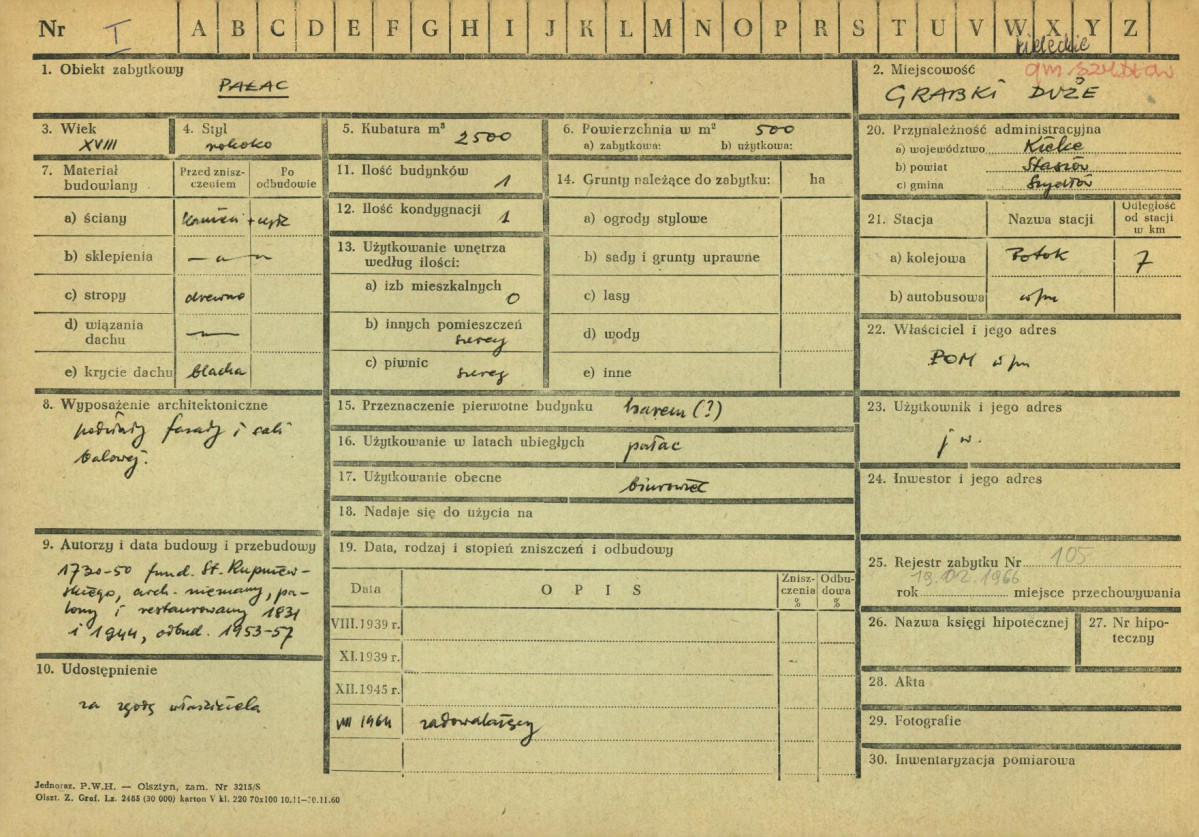 Nr I A B C D E F G H I J K L M N O P R S T U V W X Y Z
kieleckie
1. Obiekt zabytkowy
PAŁAC
2. Miejscowość
gm. Szydłów
GRABKI DUŻE
3. Wiek
XVIII
4. Styl
rokoko
5. Kubatura m³ 2500
6. Powierzchnia w m² 500
a) zabytkowa: b) użytkowa:
20. Przynależność administracyjna
a) województwo Kielce
b) powiat Staszów
c) gmina Szydłów
7. Materiał budowlany
Przed zniszczeniem
Po odbudowie
a) ściany kamień + cegła
b) sklepienia — " —
c) stropy drewno
d) wiązania dachu —
e) krycie dachu blacha
11. Ilość budynków 1
12. Ilość kondygnacji 1
13. Użytkowanie wnętrza
według ilości:
a) izb mieszkalnych 0
b) innych pomieszczeń
szereg
c) piwnic
szereg
14. Grunty należące do zabytku: ha
a) ogrody stylowe
b) sady i grunty uprawne
c) lasy
d) wody
e) inne
21. Stacja Nazwa stacji Odległość od stacji w km
a) kolejowa Potok 7
b) autobusowa w/m
22. Właściciel i jego adres
POM w/m
8. Wyposażenie architektoniczne
fasady i sali
balowej.
15. Przeznaczenie pierwotne budynku harem (?)
16. Użytkowanie w latach ubiegłych pałac
17. Użytkowanie obecne biurowiec
18. Nadaje się do użycia na
23. Użytkownik i jego adres
j w.
24. Inwestor i jego adres
9. Autorzy i data budowy i przebudowy
1730-50 fund. St. Rupniew-
skiego, arch. nieznany, pa-
lony i restaurowany 1831
i 1944, odbud. 1953-57
10. Udostępnienie
za zgodą właściciela
19. Data, rodzaj i stopień zniszczeń i odbudowy
Data O P I S Zniszczenia % Odbudowa %
VIII.1939 r.
XI.1939 r.
XII.1945 r.
VIII 1964 zadowalający
25. Rejestr zabytku Nr 105
19.02.1966
rok miejsce przechowywania
26. Nazwa księgi hipotecznej
27. Nr hipo-
teczny
28. Akta
29. Fotografie
30. Inwentaryzacja pomiarowa
Jednoraz. P.W.H. — Olsztyn, zam. Nr 3215/S
Olszt. Z. Graf. Lz. 2485 (30 000) karton V kl. 220 70x100 10.11—10.11.60